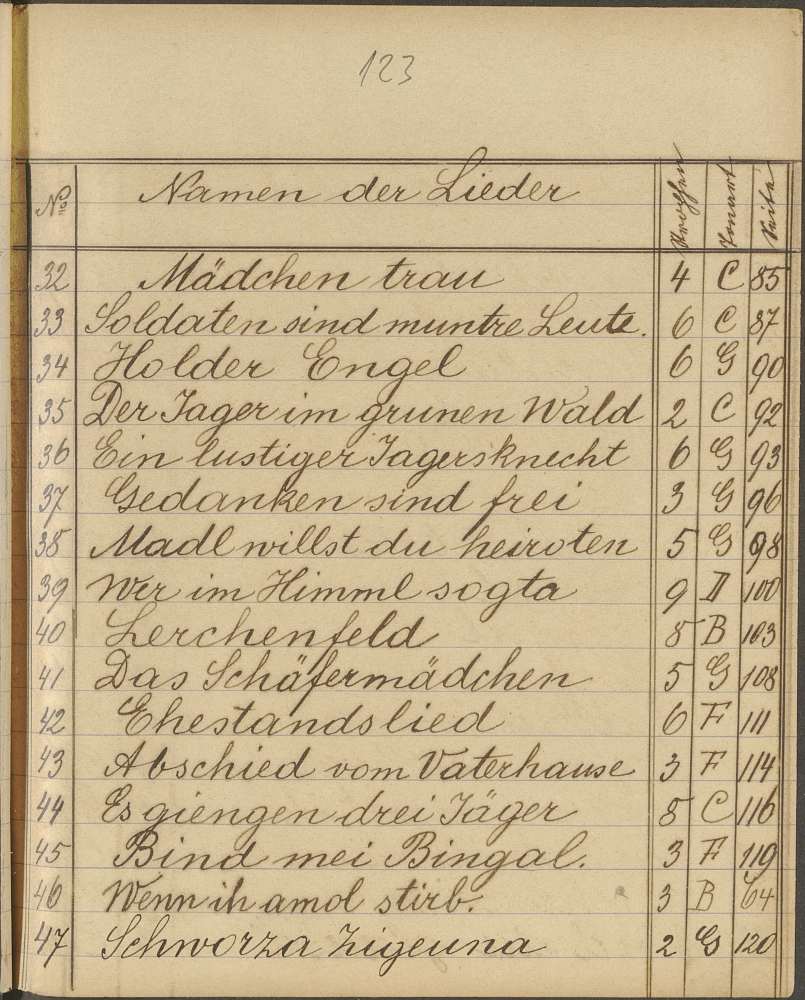 123
No Namen der Lieder Strophen Tonart Seite
32 Mädchen trau 4 C 85
33 Soldaten sind muntre Leute. 6 C 87
34 Holder Engel 6 G 90
35 Der Jager im grunen Wald 2 C 92
36 Ein lustiger Jagersknecht 6 G 93
37 Gedanken sind frei 3 G 96
38 Madl willst du heiroten 5 G 98
39 Wer im Himml sogta 9 D 100
40 Lerchenfeld 8 B 103
41 Das Schäfermädchen 5 G 108
42 Ehestandslied 6 F 111
43 Abschied vom Vaterhause 3 F 114
44 Es giengen drei Jäger 8 C 116
45 Bind mei Bingal. 3 F 119
46 Wenn ih amol stirb. 3 B 64
47 Schworza Zigeuna 2 G 120